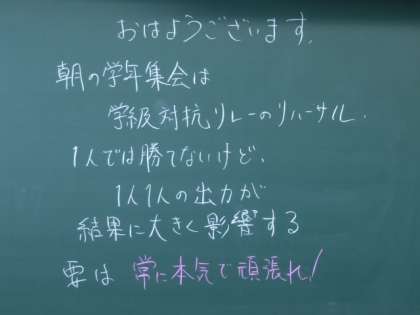 おはようございます。
朝の学年集会は
学級対抗リレーのリハーサル.
1人では勝てないけど、
1人1人の出力が
結果に大きく影響する
要は 常に本気で頑張れ!